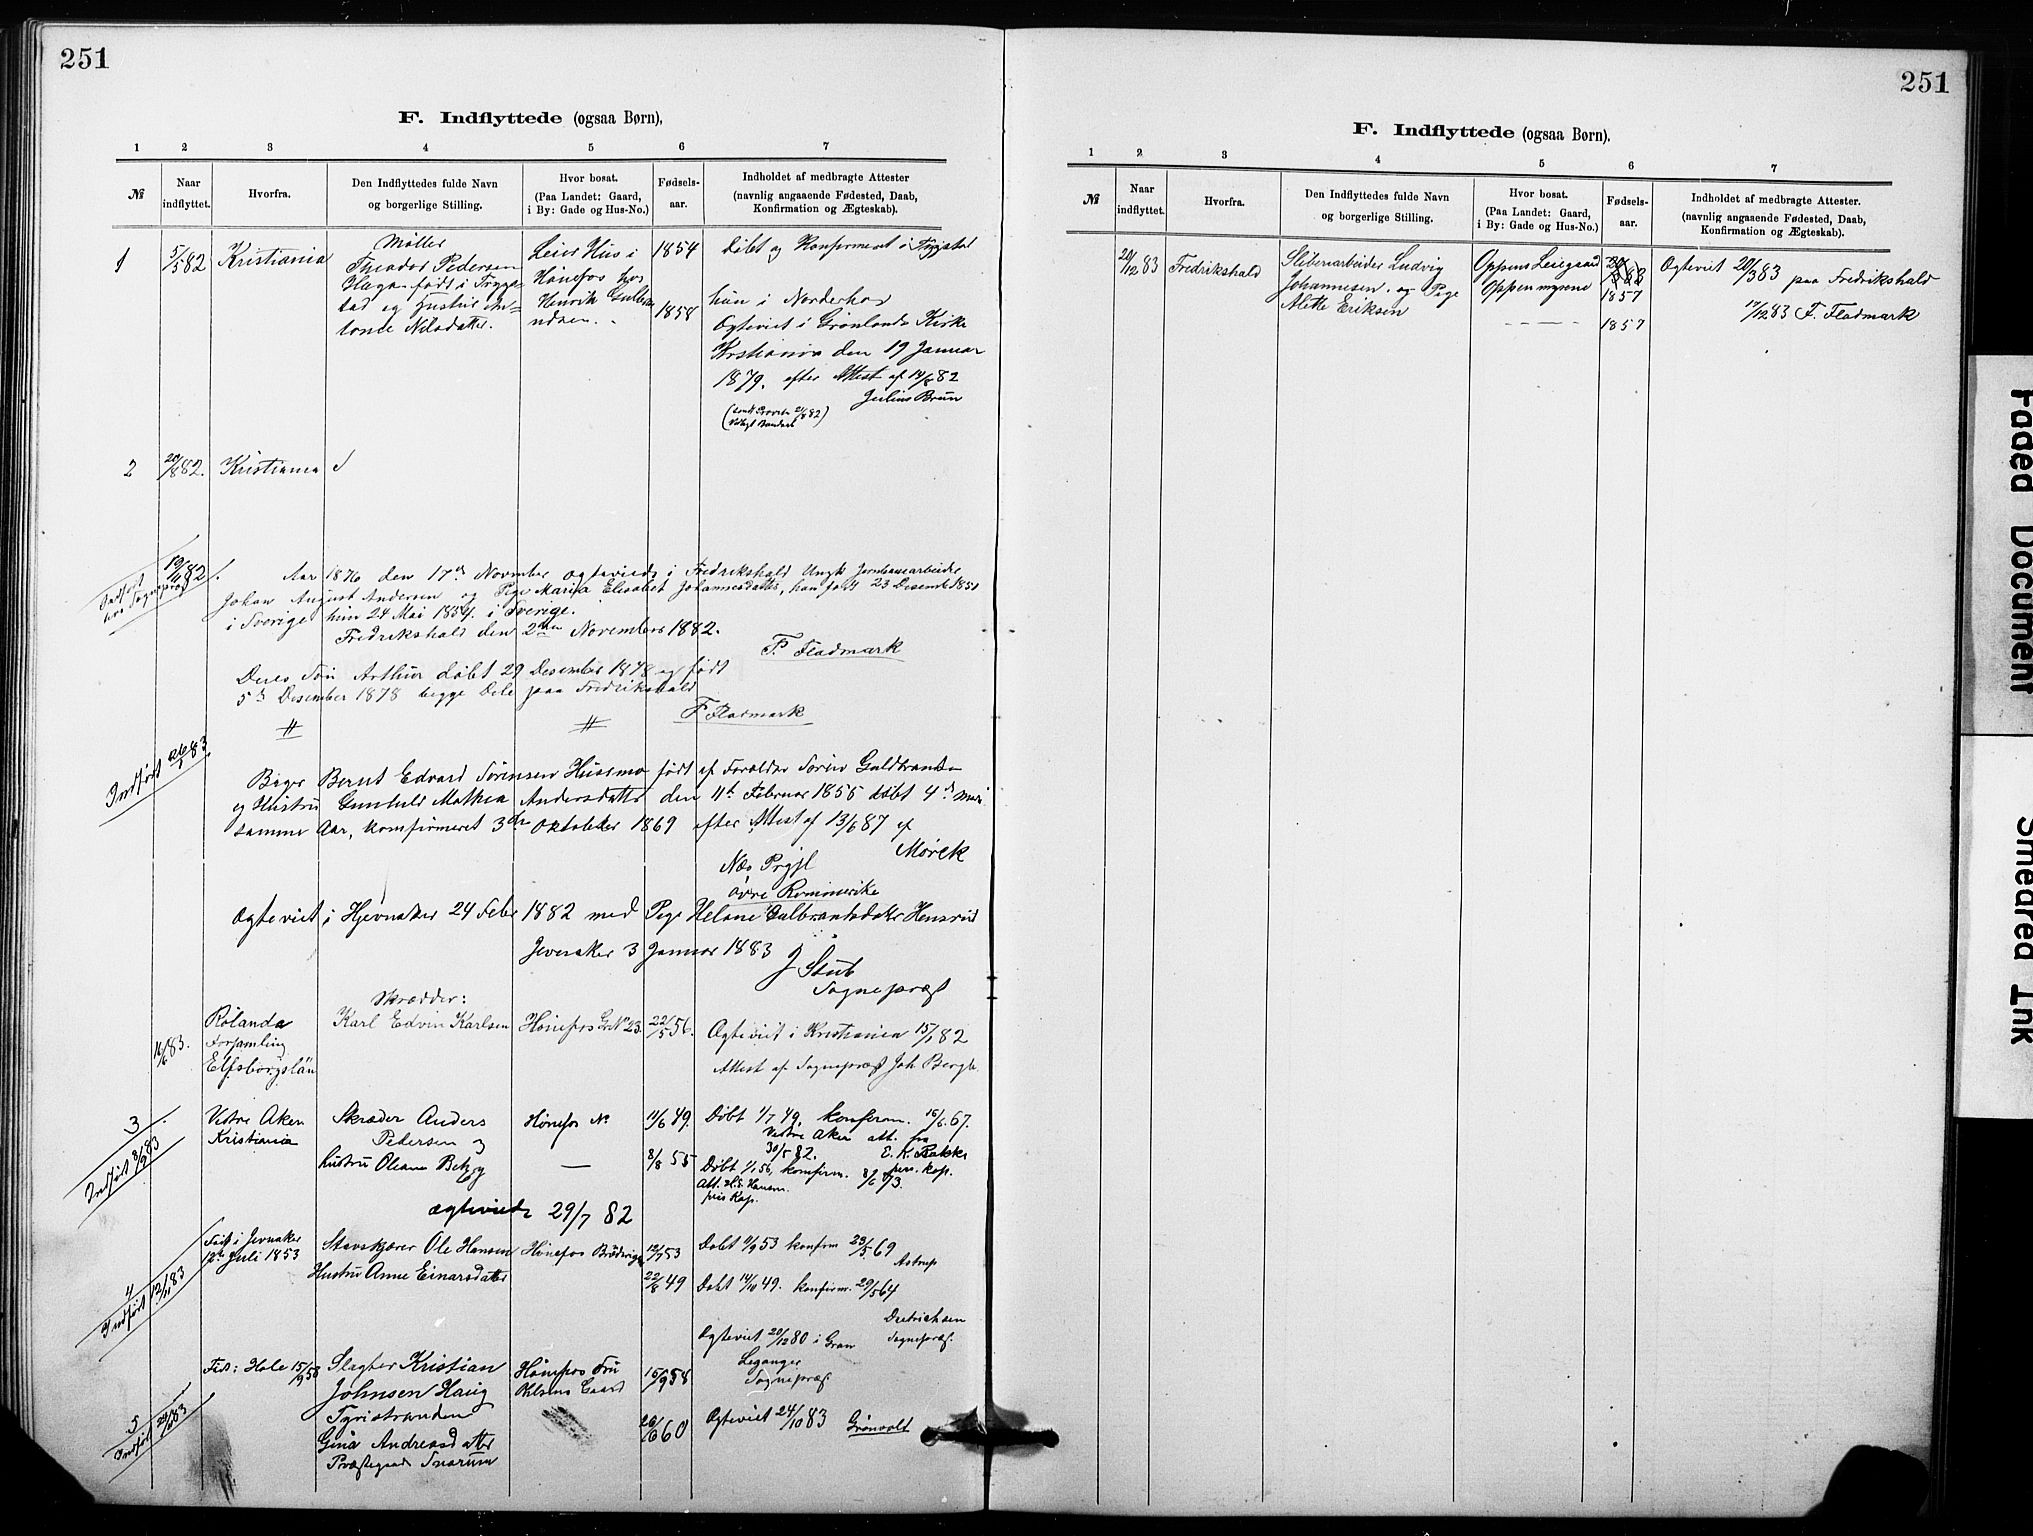 251
F. Indflyttede (ogsaa Børn),
1 2 3 4 5 6 7
№
Naar indflyttet.
Hvorfra.
Den Indflyttedes fulde Navn og borgerlige Stilling.
Hvor bosat. (Paa Landet: Gaard, i By: Gade og Hus-No.)
Fødselsaar.
Indholdet af medbragte Attester (navnlig angaaende Fødested, Daab, Konfirmation og Ægteskab).
1 5/5 82 Kristiania
Møller
Theodor Pedersen
Haga født i Trygstad og Hustru Antonte Nilsdatter.
Leier Hus i
Hønefos hos
Henrik Gulbrandsen.
1854
1858
Døbt og Konfirmeret i Trygstad
hun i Norderhov
Ogteviet i Grønlands Kirke
Krstiania den 19 Januar
1879. efter Attest af 14/8 82
Julius Brun
2 20/8 82. Kristiania
19/11 82
Indført
hos Sogneprest
Aar 1876 den 17de November ogteviede i Fredrikshald Ungk Jernbanearbeider
Johan August Andersen og Pige Maria Elisabet Johannesdatter, han født 23 Desember 1850
i Sverige hun 24 Mai 1854. i Sverige.
Fredrikshald den 2den November 1882.
F. Fladmark
Deres Søn Arthur døbt 29 Desember 1878 og født
5te Desember 1878 begge Dele paa Fredrikshald
F Fladmark
Indført 26/1 83
Bager Bernt Edvard Sørensen Husmo født af Foraldre Søren Guldbrands
og Hustru Gunhild Mathea Andersdatter den 11te Februar 1855 døbt 4de Mars
samme Aar, komfirmeret 3die Oktober 1869 efter Attest af 13/6 87 af
Mørck
Næs Prgjl
øvre Rommerike
Ogteviet i Hjevnaker 24 Febr 1882 med Pige Helene Gulbrantsdatter Hensrud
Jevenaker 3 Januar 1883
J Stub
Sogneprest
16/6 83.
Rølanda
Forsamling
Elfsborgslän
Skrædder:
Karl Edvin Karlsen
Hønefos Gr No 23.
22/5 56.
Ogteviet i Kristiania 15/1 82
Attest af Sogneprest Joh Bergh
3
Indført 8/9 83
Vestre Aker
Kristiania
Skræder Anders
Pedersen og
hustru Oleane Betzy
Hønefos No
11/6 49.
8/8 55
Døbt 1/7 49, konferm. 16/6. 67.
Vestre Aker att. fra
30/5 82. E. K. Bakke
pers. kap.
Døbt 1/1 56, konfirm. 8/6 73.
Att. H. S. Hansen
pers Kap.
ægteviede 29/7 82
4
Indført 12/11 83
Født i Jevnaker
12te Juli 1853
Stavskjærer Ole Hansen
Hustru Anne Einarsdatter
Hønefos
12/7 53
22/8 49
Døbt 11/9 53 konfirm 23/5 69
Astrup
Døbt 14/10 49. konfirm. 29/5 64
Dietrichsen
Sogneprest.
Ogteviet 20/12 80 i Gran
Leganger
Sogneprest
5
Indført 83
Født: Hole 15/9 58
Slagter Kristian
Johnsen Haug
Tyristranden
Gina Andreasdatter
Præstegaard Snarum
Hønefos Fru
Ohlsens Gaard
15/9 58
26/6 60
Ogteviet 24/10 83 Grønvolt
251
F. Indflyttede (ogsaa Børn).
1 2 3 4 5 6 7
№
Naar indflyttet.
Hvorfra.
Den Indflyttedes fulde Navn og borgerlige Stilling.
Hvor bosat. (Paa Landet: Gaard, i By: Gade og Hus-No.)
Fødselsaar.
Indholdet af medbragte Attester. (navnlig angaaende Fødested, Daab, Konfirmation og Ægteskab).
29/12 83 Fredrikshald
Sliberiarbeider Ludvig
Johannesen. og Pige
Alette Eriksen
Oppens Leiegaard
Oppenmyrene
1857
1857
Ogteviet 20/3 83 paa Fredrikshald
17/12 83 F. Fladmark
Faded Document
Smeared Ink